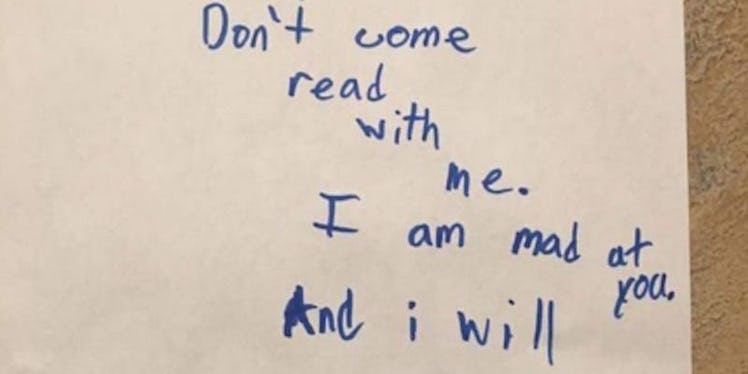 Don't come
read
with
me.
I am mad at
you.
And i will